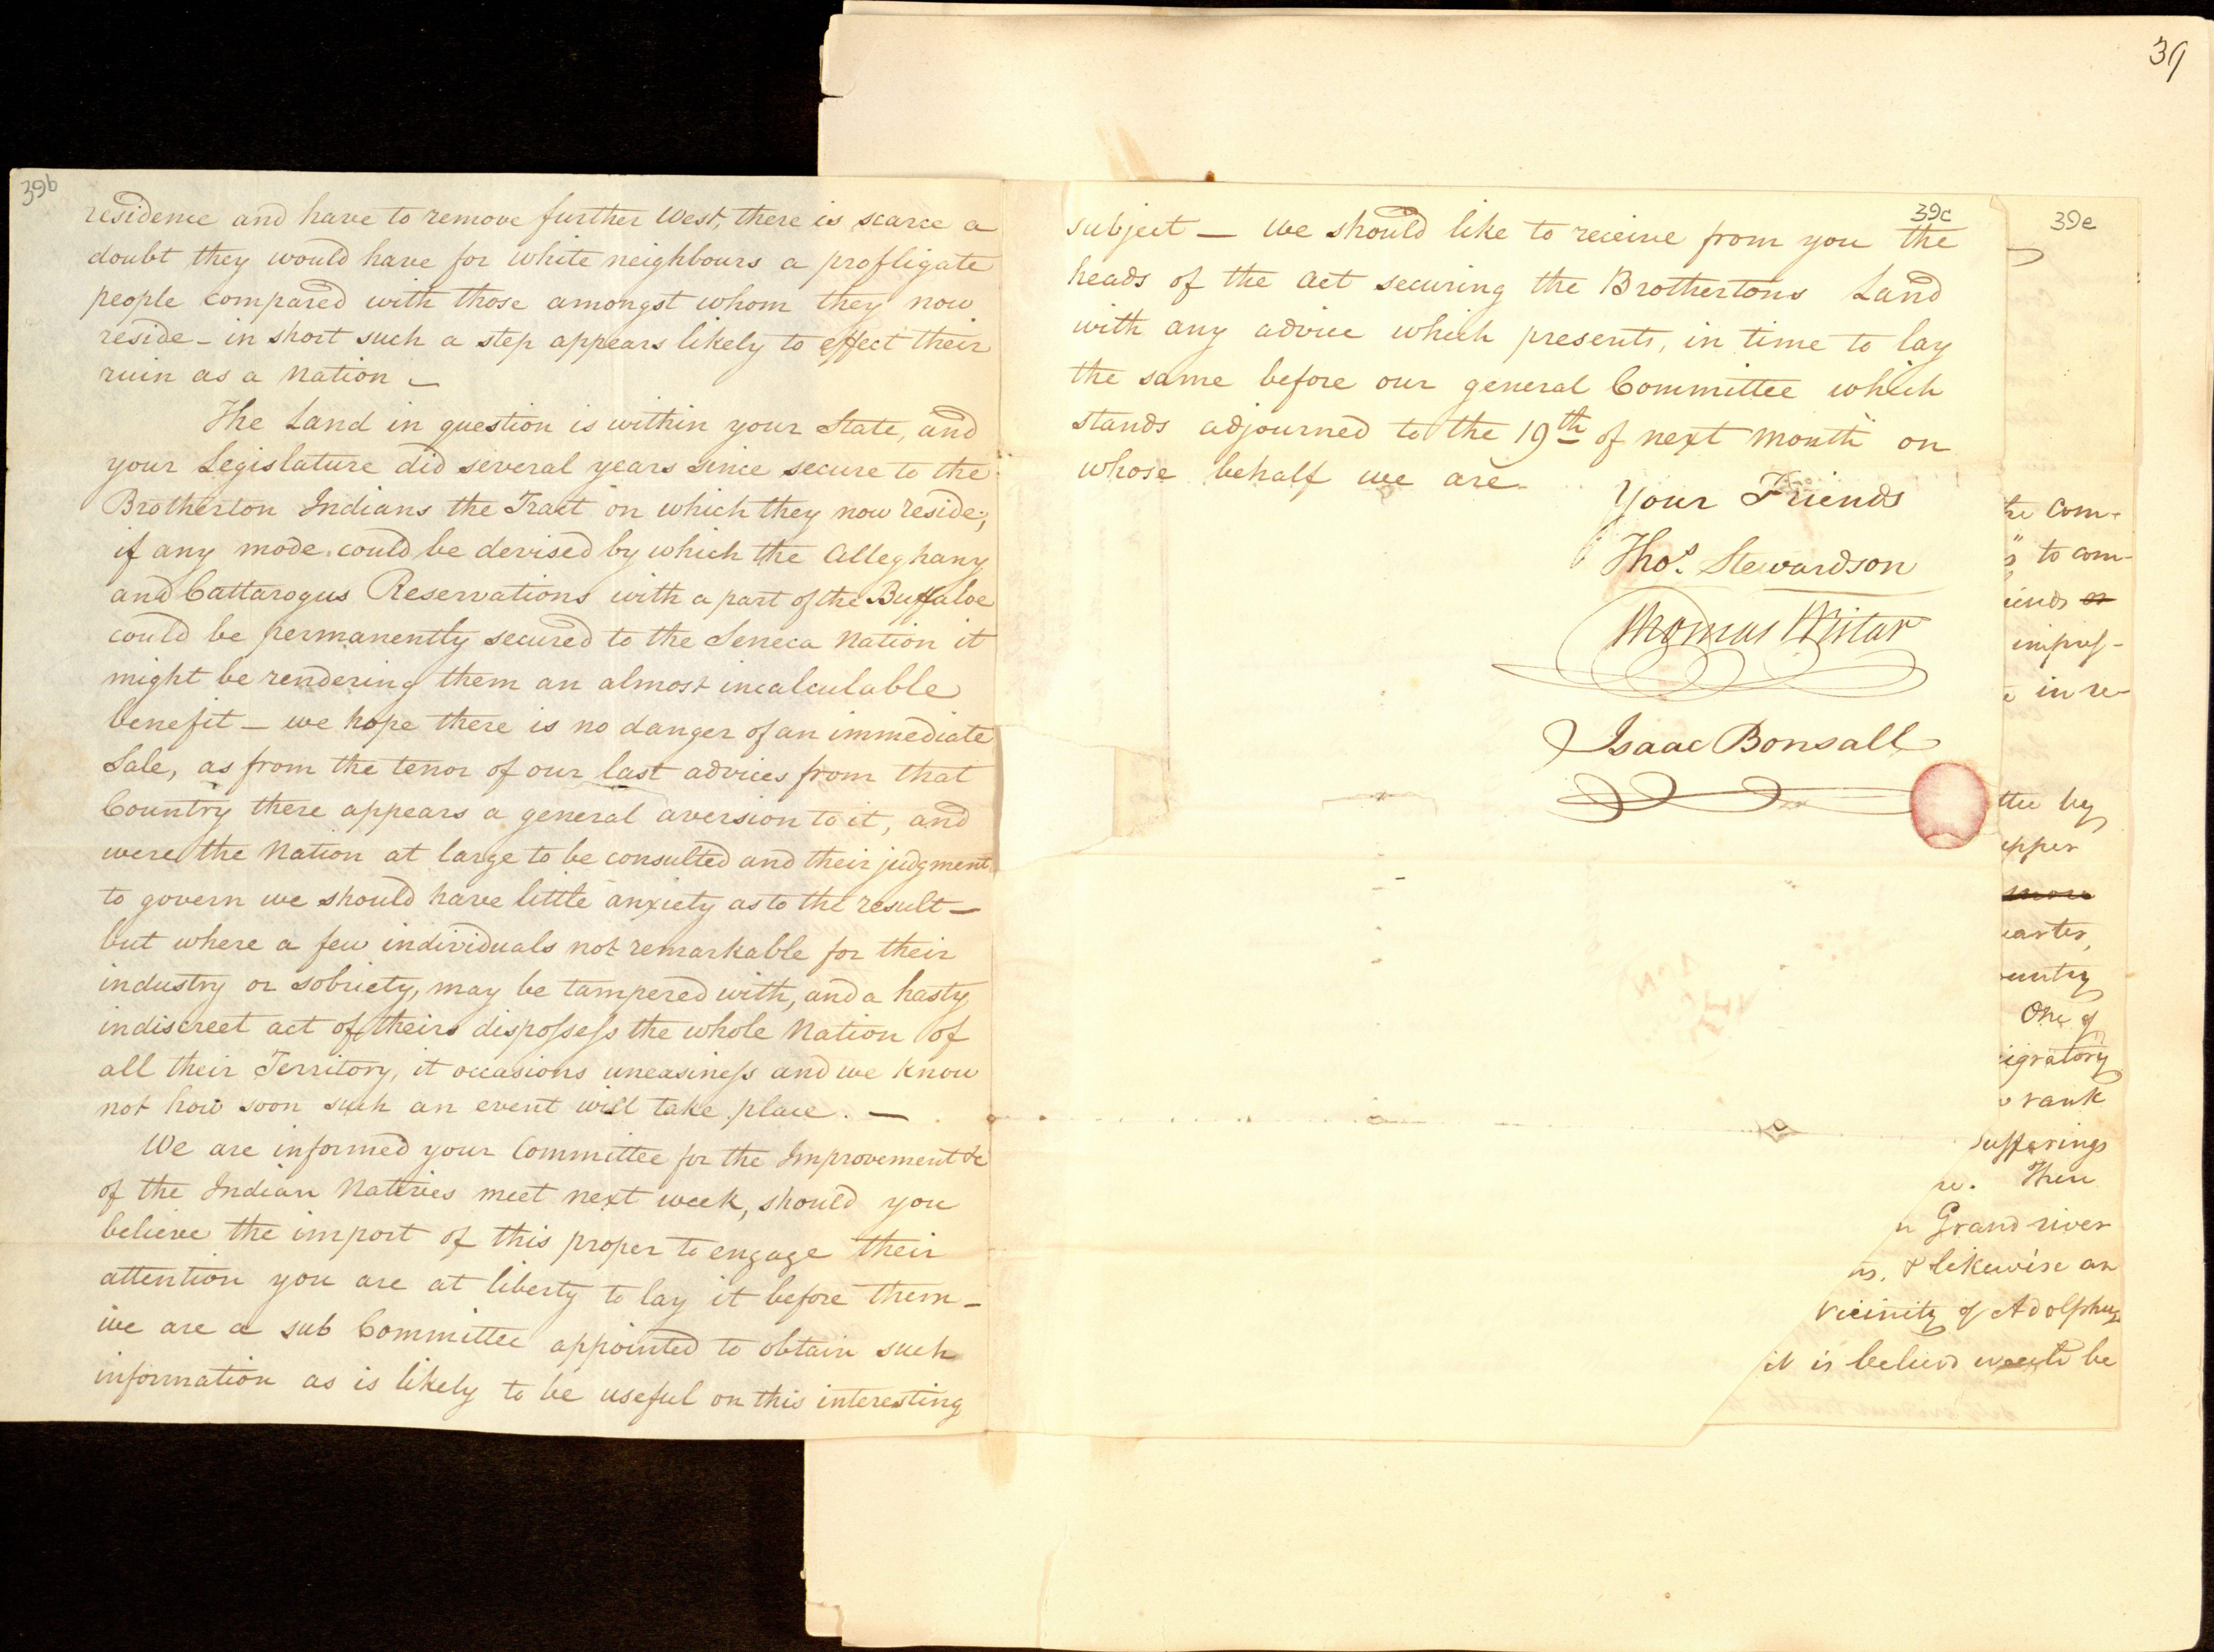 39
39b
residence and have to remove further West, there is scarce a
doubt they would have for white neighbours a profligate
people compared with those amongst whom they now
reside - in short such a step appears likely to effect their
ruin as a Nation —
The Land in question is within your State, and
your Legislature did several years since secure to the
Brotherton Indians the Tract on which they now reside;
if any mode could be devised by which the Alleghany
and Cattarogus Reservations with a part of the Buffaloe
could be permanently secured to the Seneca Nation it
might be rendering them an almost incalculable
benefit — we hope there is no danger of an immediate
Sale, as from the tenor of our last advices from that
Country there appears a general aversion to it, and
were the Nation at large to be consulted and their judgment
to govern we should have little anxiety as to the result —
but where a few individuals not remarkable for their
industry or sobriety, may be tampered with, and a hasty
indiscreet act of theirs dispossess the whole Nation of
all their Territory, it occasions uneasiness and we know
not how soon such an event will take place. —
We are informed your Committee for the Improvement &c
of the Indian Natives meet next week, should you
believe the import of this proper to engage their
attention you are at liberty to lay it before them —
we are a sub Committee appointed to obtain such
information as is likely to be useful on this interesting
39c
subject — we should like to receive from you the
heads of the Act securing the Brothertons Land
with any advice which presents, in time to lay
the same before our general Committee which
stands adjourned to the 19th of next month on
whose behalf we are
Your Friends
Thos. Stewardson
Thomas Wistar
Isaac Bonsall
39e
he com-
to com-
iends or
impress-
in re-
ttee by
upper
more
uarter,
ountry
One of
igratory
rank
Sufferings
There
Grand river
ns, & likewise an
vicinity of Adolphus
it is believd would be